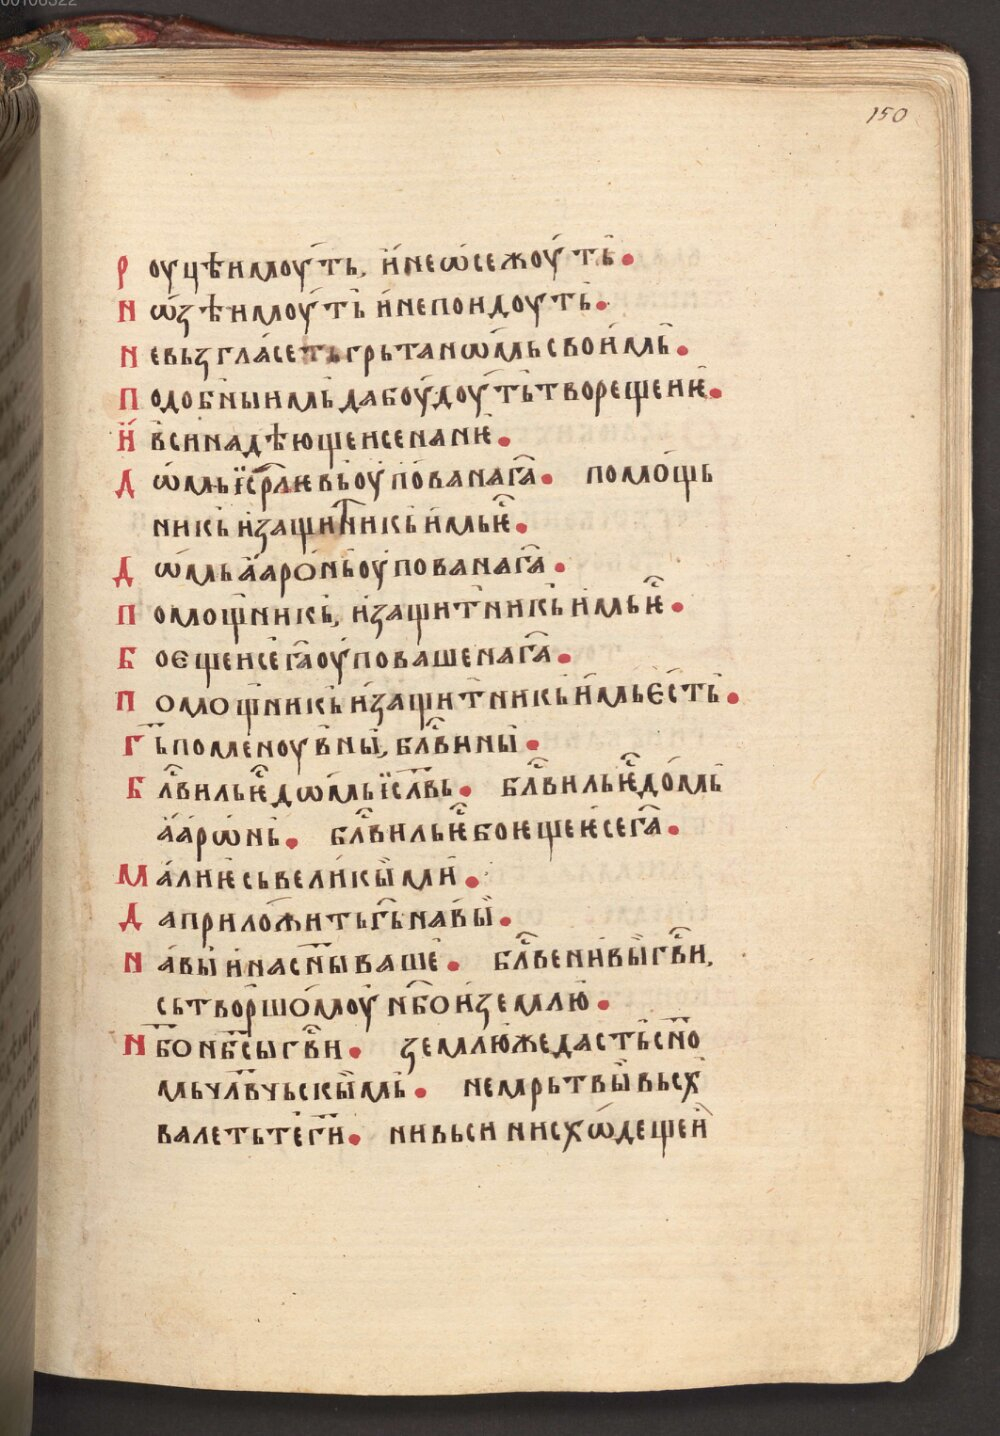 150
Роуцѣимоуть, инеѡсежоуть.
Nѡзѣимоуть инепоидоуть.
Невьзгласеть грьтаномь своимь.
Подобныимь дабоудоуть твореще ѥ.
И вси надѣющеисе на нѥ.
Дѡмь їсрл҃ѥвь оупова на га҃. помощь
никь изащитникь имь ѥ҃.
Дѡмь ааронь оупова на га҃.
Помощникь, изащитникь имь ѥ҃.
Боєщеисе га҃ оуповаше на га҃.
Помощникь изащитникь имь єсть.
Гь҃ поменоувны, блв҃и ны.
Блв҃иль ѥ҃ дѡмь їслв҃ь. блв҃иль ѥ҃ домь
аарѡнь. блв҃иль ѥ҃ боѥщеѥсе га҃.
Малиѥ сьвеликыми.
Даприложить гь҃ навы.
Навы инасн҃ы ваше. блв҃ени вы гв҃и,
сьтворшомоу нб҃о иземлю.
Нб҃о нб҃сы гв҃и. землюжедасть сн҃о
мь члв҃чьскымь. немрьтвы вьсх
валеть те ги҃. нивьси нисхѡдещеи